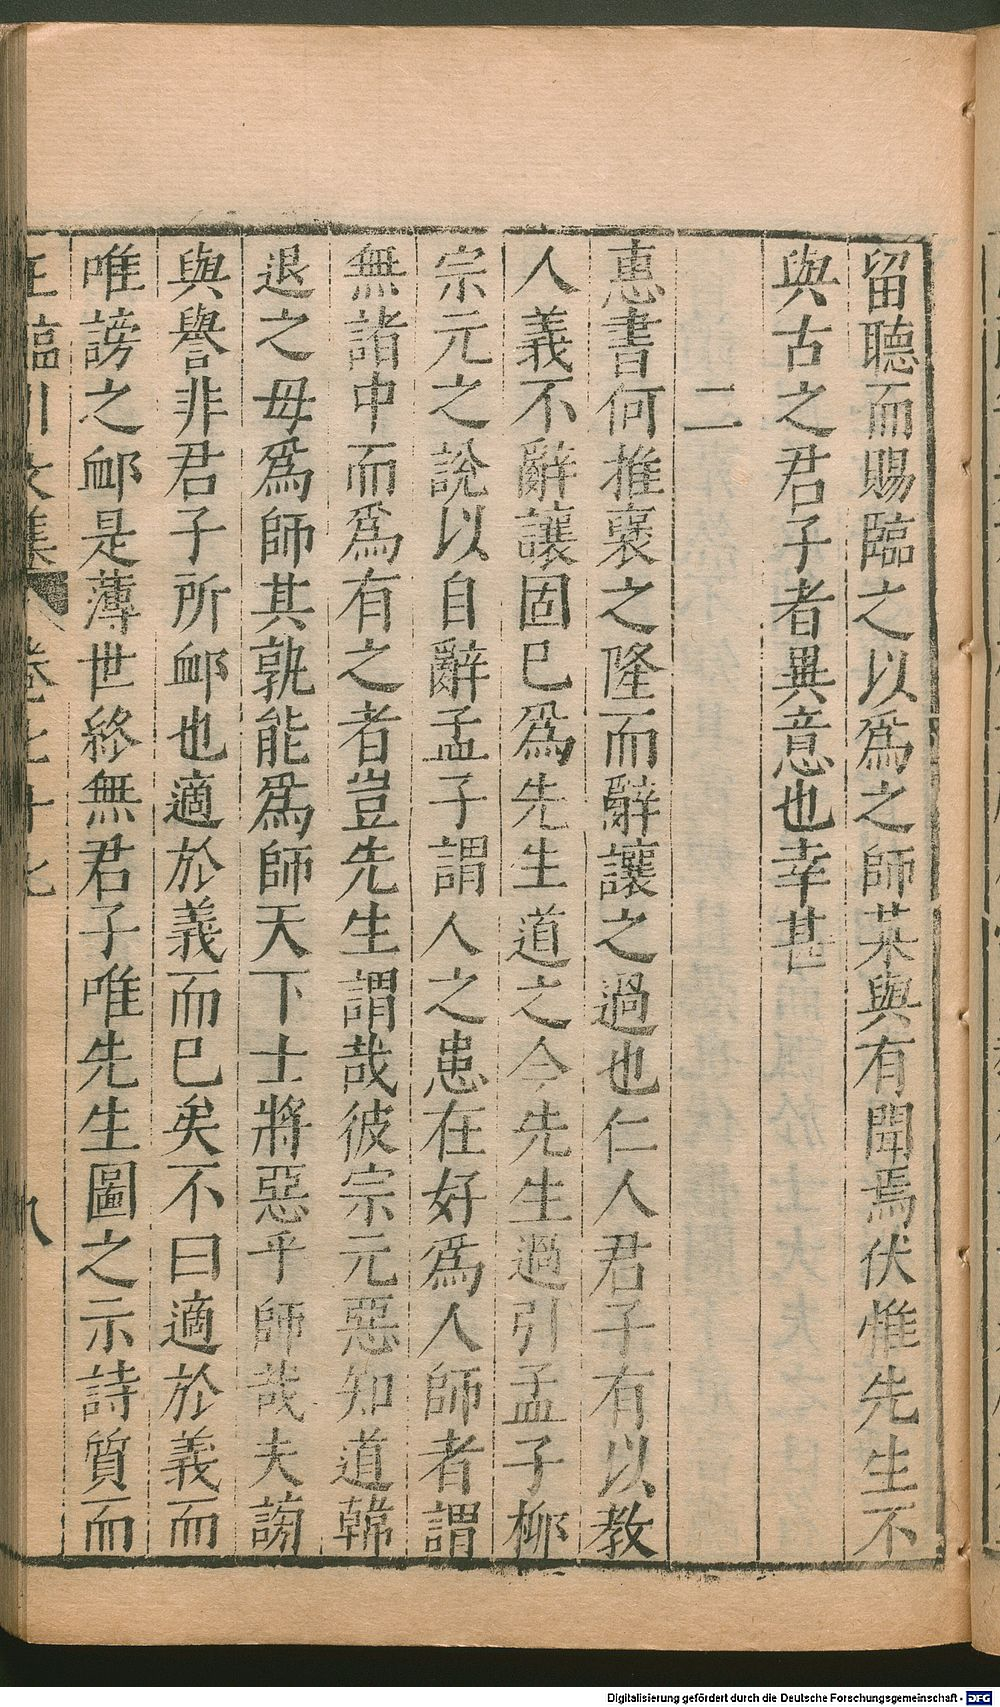 留聽而賜臨之以爲之師某與有聞焉伏惟先生不
與古之君子者異意也幸甚
二
惠書何推襃之隆而辭讓之過也仁人君子有以教
人義不辭讓固已爲先生道之今先生過引孟子栁
宗元之說以自辭孟子謂人之患在好爲人師者謂
無諸中而爲有之者豈先生謂哉彼宗元惡知道韓
退之毋爲師其孰能爲師天下士將惡乎師哉夫謗
與譽非君子所衈也適於義而已矣不曰適於義而
唯謗之衈是薄世終無君子唯先生圖之示詩質而
王臨川文集 卷七十七 八
Digitalisierung gefördert durch die Deutsche Forschungsgemeinschaft - DFG